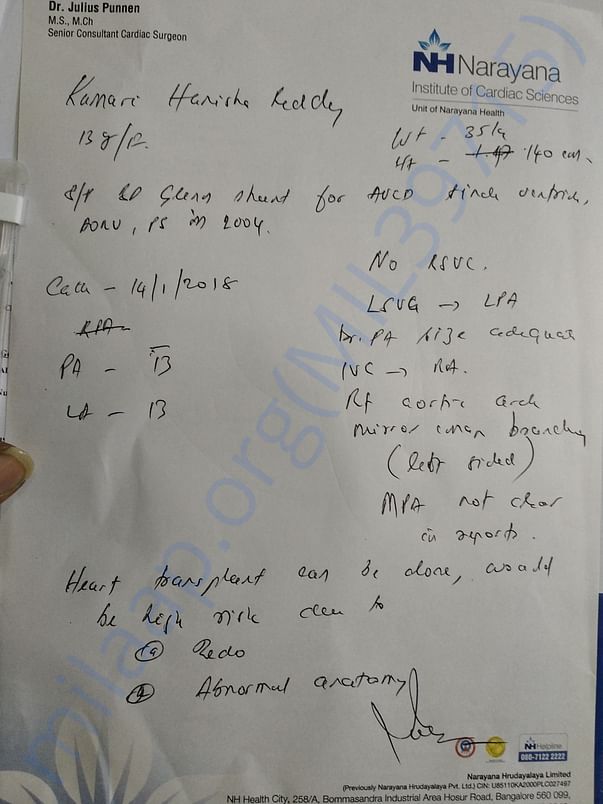 Dr. Julius Punnen
M.S., M.Ch
Senior Consultant Cardiac Surgeon
NH Narayana
Institute of Cardiac Sciences
Unit of Narayana Health
Kumari Hanisha Reddy
13 y/F.
Wt - 35 kg
Ht - 1.47 140 cm.
S/P BD Glenn shunt for AVCD single ventricle,
DORV, PS in 2004.
Cath - 14/1/2018
RPA
PA - 13
LA - 13
No RSVC.
LSVC → LPA
Br. PA size adequate
IVC → RA.
Rt aortic arch
Mirror image branching
(left sided)
MPA not clear
in reports.
Heart transplant can be done, would
be high risk due to
Redo
Abnormal anatomy
milaap.org(MIL39715)
NH Helpline
080-7122 2222
Narayana Hrudayalaya Limited
(Previously Narayana Hrudayalaya Pvt. Ltd.) CIN: U85110KA2000PLC027497
NH Health City, 258/A, Bommasandra Industrial Area Hosur Road, Bangalore 560 099,